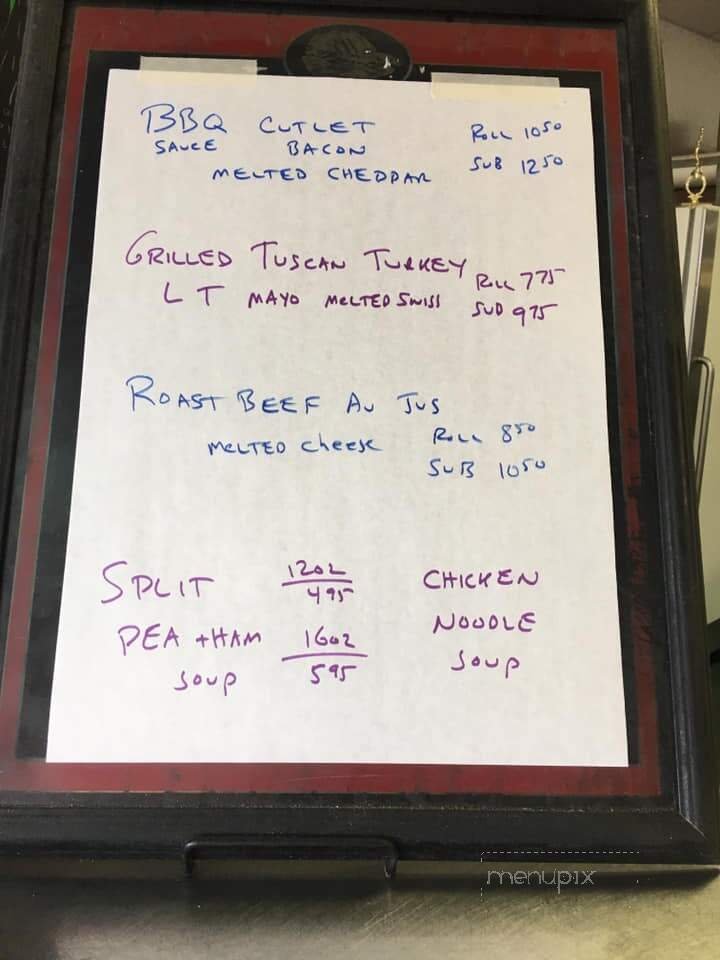 BBQ CUTLET ROLL 1050
SAUCE BACON SUB 1250
MELTED CHEDDAR
GRILLED TUSCAN TURKEY ROLL 775
L T MAYO MELTED SWISS SUB 975
ROAST BEEF AU JUS
MELTED CHEESE ROLL 850
SUB 1050
SPLIT 12oz CHICKEN
495
PEA + HAM 16oz NOODLE
SOUP 595 SOUP
menupix